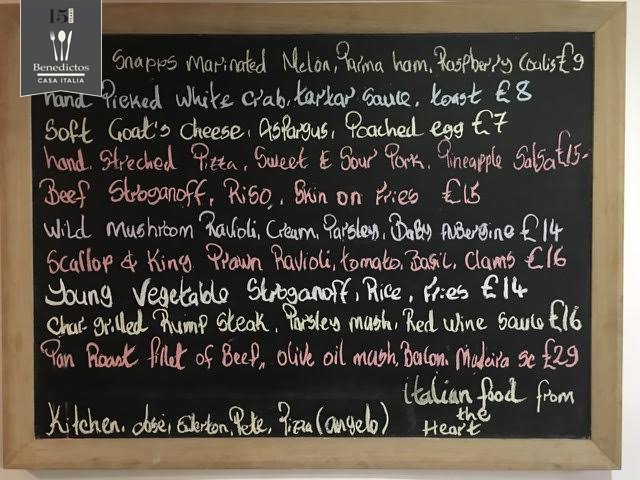 15
Benedictos
CASA ITALIA
Snapps Marinated Melon, Parma ham, Raspberry Coulis £9
hand Picked White Crab, tartar sauce, toast £8
Soft Goat's cheese, Aspargus, Poached egg £7
hand Streched Pizza, Sweet & Sour Pork, Pineapple Salsa £15-
Beef Stroganoff, Riso, Skin on Fries £15
Wild mushroom Ravioli, Cream, Parsley, Baby Aubergine £14
Scallop & King Prawn Ravioli, tomato, Basil, Clams £16
Young Vegetable Stroganoff, Rice, Fries £14
Char grilled Rump Steak, Parsley mash, Red wine Sauce £16
Pan Roast fillet of Beef, olive oil mash, Bacon, Madeira sc £29
italian food from
the
Heart
Kitchen, José, Ewerton, Pete, Pizza (angelo)